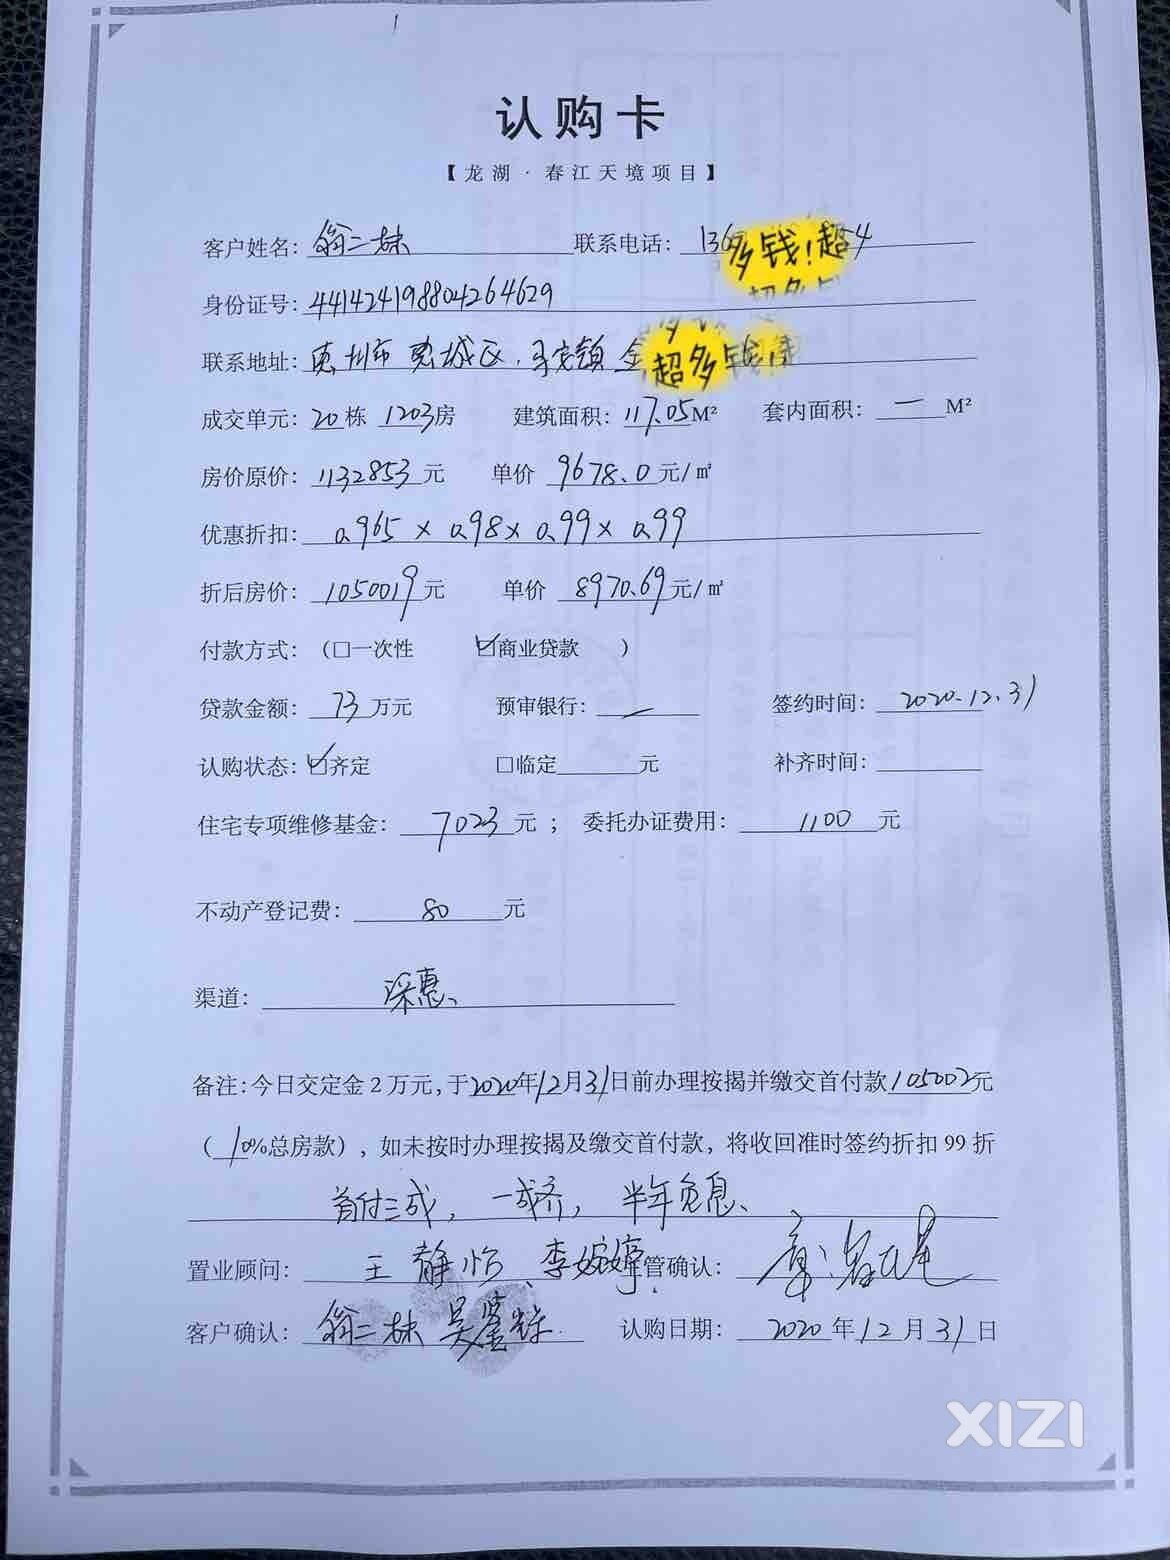 认购卡
【龙湖·春江天境项目】
客户姓名：翁二妹 联系电话：136多钱！超4
超多钱
身份证号：441424198804264629
联系地址：惠州市 惠城区，马安镇 金 超多钱
成交单元：20栋 1203房 建筑面积：117.05M² 套内面积：—M²
房价原价：1132853元 单价 9678.0元/㎡
优惠折扣：0.965×0.98×0.99×0.99
折后房价：1050019元 单价 8970.69元/㎡
付款方式：（□一次性 ☑商业贷款 ）
贷款金额：73万元 预审银行：— 签约时间：2020.12.31
认购状态：☑齐定 □临定 元 补齐时间：
住宅专项维修基金：7023元； 委托办证费用：1100元
不动产登记费：80元
渠道：深惠、
备注：今日交定金2万元，于2020年12月31日前办理按揭并缴交首付款105002元
（10%总房款），如未按时办理按揭及缴交首付款，将收回准时签约折扣99折
首付三成，一成齐，半年免息、
置业顾问：王静怡、李婉婷 管确认：
客户确认：翁二妹 吴 认购日期：2020年12月31日
XIZI